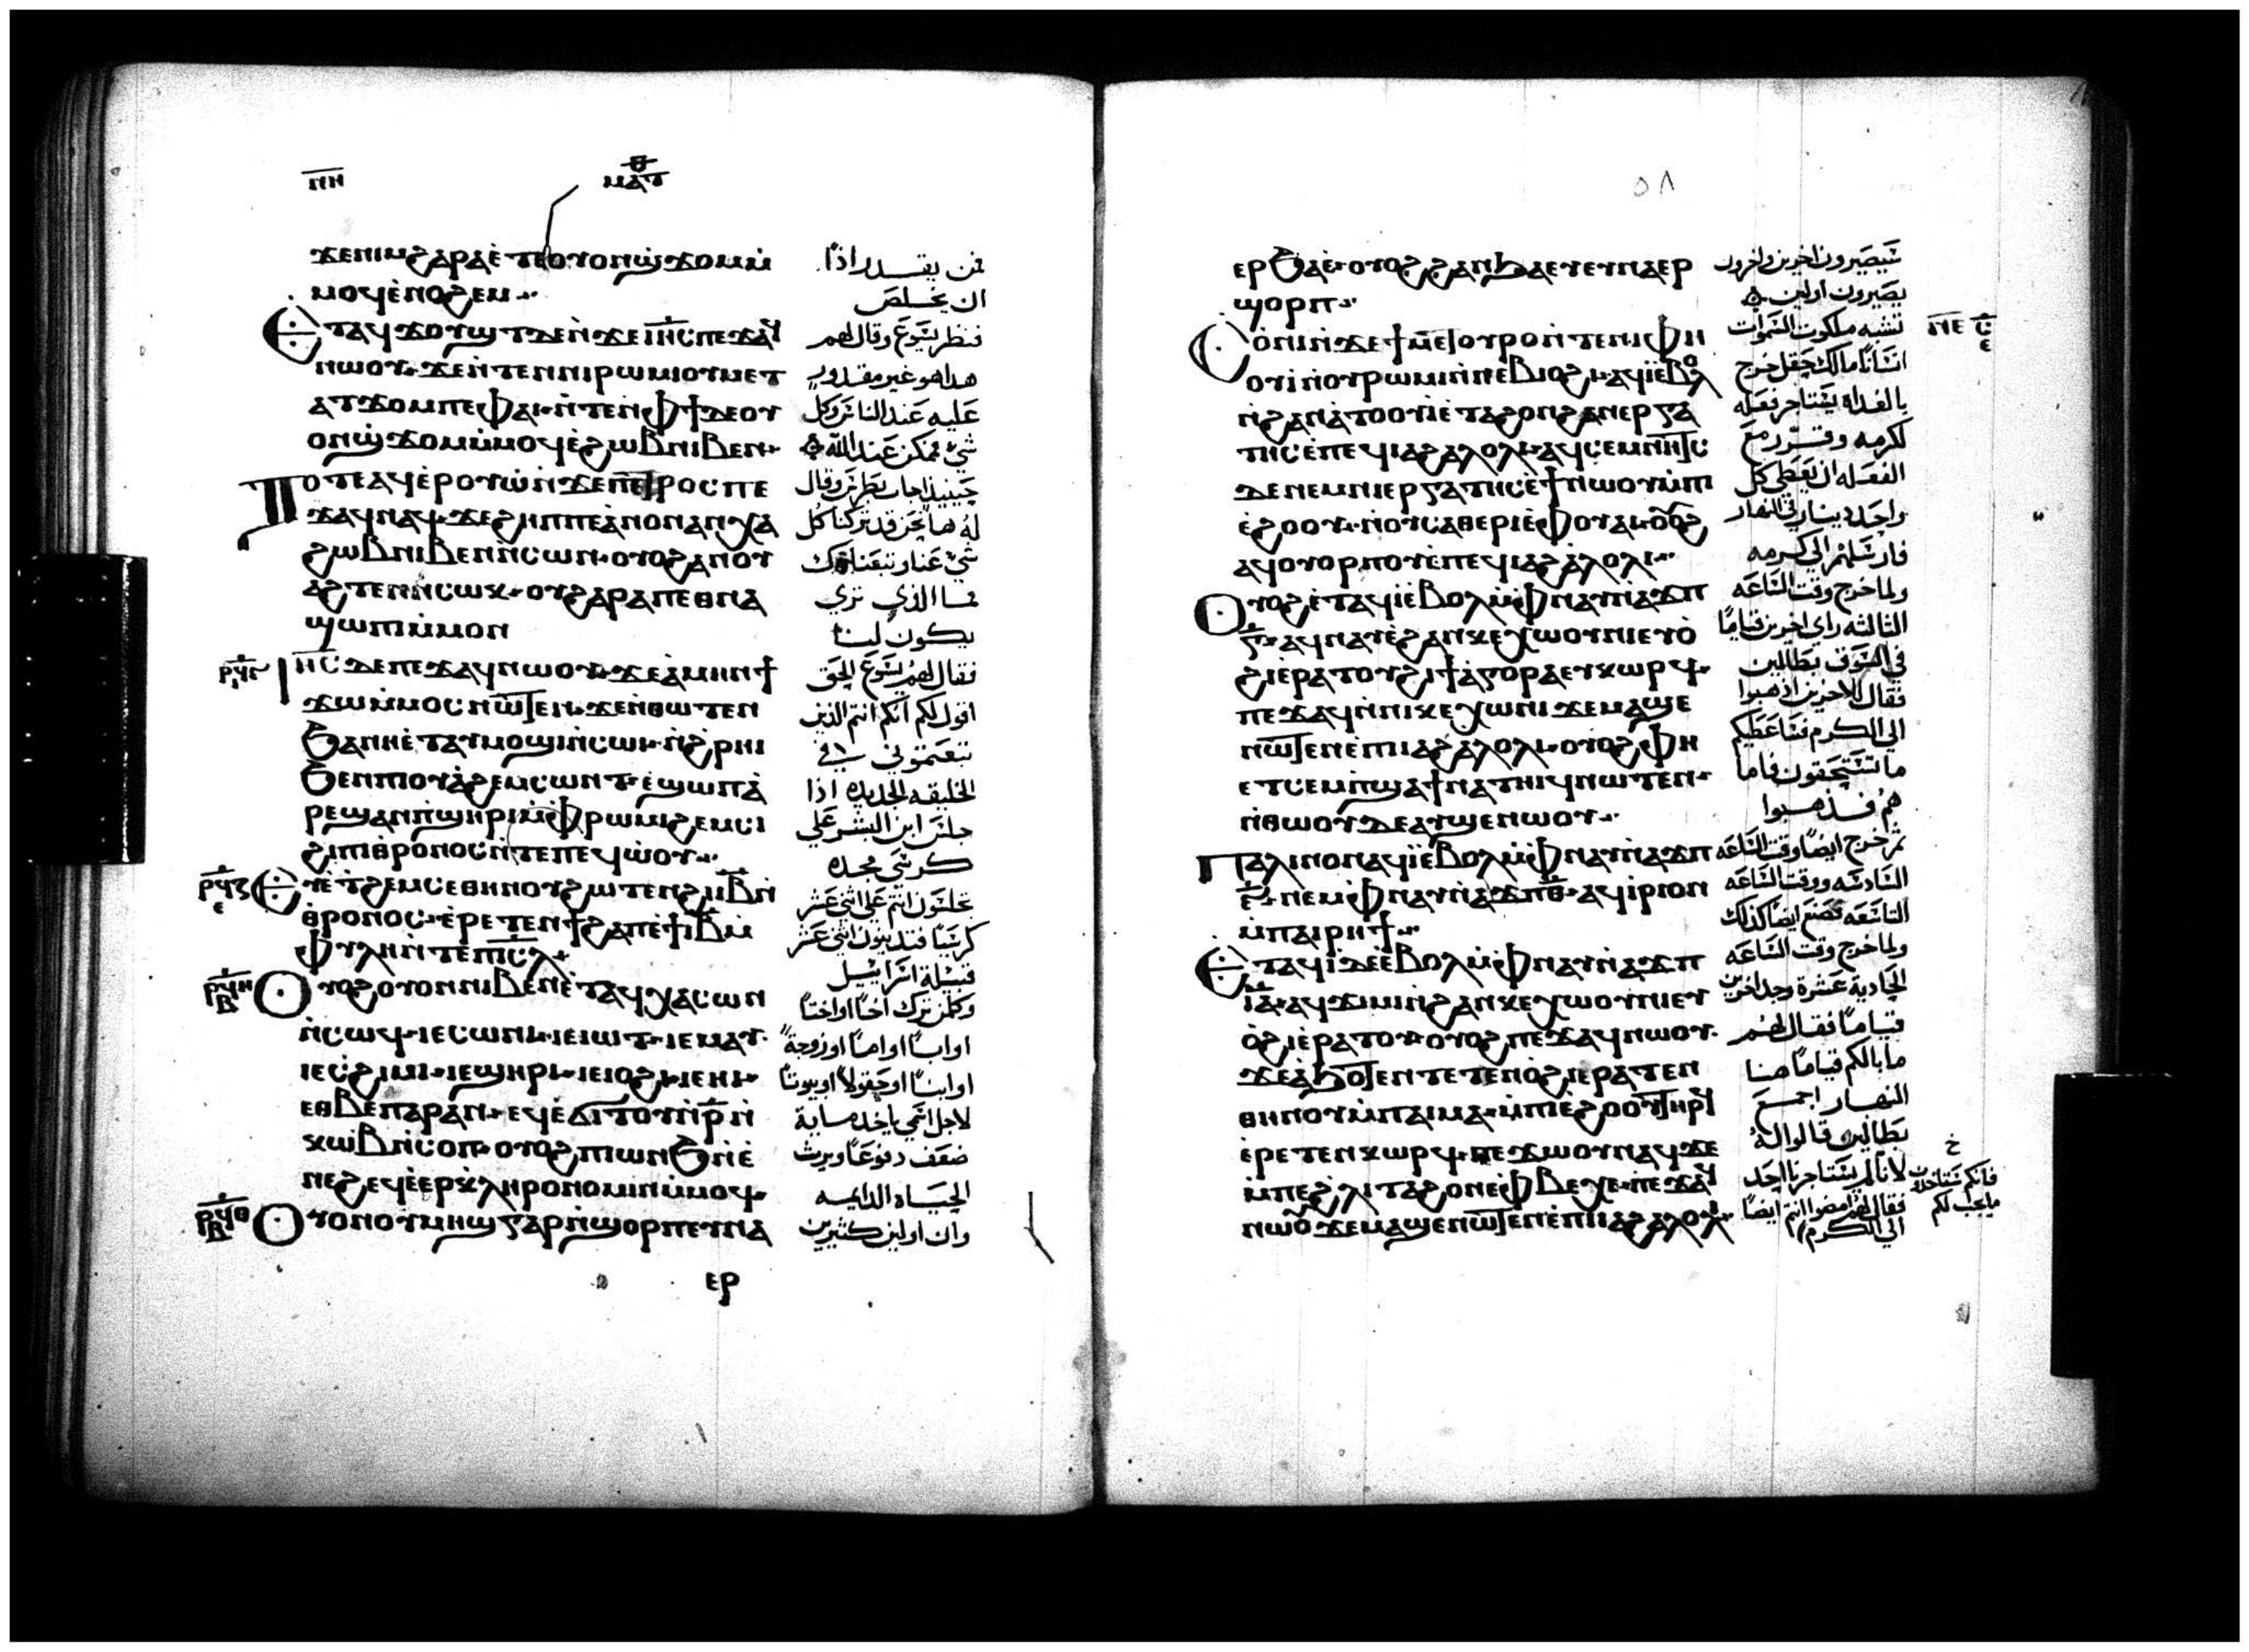 ⲛⲏ
ⲙⲁⲧ
ϫⲉⲛⲓⲙϩⲁⲣⲁⲉ̀ⲧⲉⲟⲩⲟⲛϣ̀ϫⲟⲙⲙ̀
ⲙⲟϥⲉ̀ⲛⲟϩⲉⲙ
ⲉⲧⲁϥϫⲟⲩϣⲧⲇⲉⲛ̀ϫⲉⲓⲏ̅ⲥ̅ⲡⲉϫⲁϥ
ⲛⲱⲟⲩ ϫⲉⲛ̀ⲧⲉⲛⲛⲓⲣⲱⲙⲓⲟⲩⲙⲉⲧ
ⲁⲧϫⲟⲙⲡⲉⲫⲁⲓ ⲛ̀ⲧⲉⲛⲫϯⲇⲉⲟⲩ
ⲟⲛϣ̀ϫⲟⲙⲙ̀ⲙⲟϥⲉ̀ϩⲱⲃⲛⲓⲃⲉⲛ
ⲧⲟⲧⲉⲁϥⲉ̀ⲣⲟⲩⲱ̀ⲛ̀ϫⲉⲡⲉⲧⲣⲟⲥⲡⲉ
ϫⲁϥⲛⲁϥ ϫⲉϩⲏⲡⲡⲉⲁ̀ⲛⲟⲛⲁⲛⲭⲁ
ϩⲱⲃⲛⲓⲃⲉⲛⲛ̀ⲥⲱⲛ ⲟⲩⲟϩⲁⲛⲟⲩ
ⲁϩⲧⲉⲛⲛ̀ⲥⲱⲕ ⲟⲩϩⲁⲣⲁⲡⲉⲑⲛⲁ
ϣⲱⲡⲓⲙ̀ⲙⲟⲛ
ⲓⲏ̅ⲥ̅ⲇⲉⲡⲉϫⲁϥⲛⲱⲟⲩ ϫⲉⲁ̀ⲙⲏⲛϯ
ϫⲱⲙ̀ⲙⲟⲥⲛⲱⲧⲉⲛ ϫⲉⲛ̀ⲑⲱⲧⲉⲛ
ϧⲁⲛⲏⲉ̀ⲧⲁⲩⲙⲟϣⲓⲛ̀ⲥⲱⲓ ⲛ̀ϩ̀ⲣⲏⲓ
ϧⲉⲛⲡⲓⲟⲩⲁ̀ϩⲉⲙⲥⲱⲛⲧ ⲉ̀ϣⲱⲡⲁ̀
ⲣⲉϣⲁⲛⲡ̀ϣⲏⲣⲓⲙ̀ⲫⲣⲱⲙⲓϩⲉⲙⲥⲓ
ϩⲓⲡⲓⲑⲣⲟⲛⲟⲥⲛ̀ⲧⲉⲡⲉϥⲱ̀ⲟⲩ
ⲉⲣⲉⲧⲉⲛϯϩⲁⲡⲉ̀ϯⲓ̅ⲃ̅ⲙ̀
ⲫⲩⲗⲏⲛ̀ⲧⲉⲡⲓⲥ̅ⲗ̅
ⲟⲩⲟϩⲟⲩⲟⲛⲛⲓⲃⲉⲛⲉ̀ⲧⲁϥⲭⲁⲥⲟⲛ
ⲛ̀ⲥⲱϥ ⲓⲉⲥⲱⲛⲓ ⲓⲉⲓⲱⲧ ⲓⲉⲙⲁⲩ
ⲓⲉⲥ̀ϩⲓⲙⲓ ⲓⲉϣⲏⲣⲓ ⲓⲉⲓⲟϩⲓ ⲓⲉⲏⲓ
ⲉⲑⲃⲉⲡⲁⲣⲁⲛ ⲉϥⲉ̀ϭⲓⲧⲟⲩⲛ̀ⲣ̅ⲛ̀
ⲕⲱⲃⲛ̀ⲥⲟⲡ ⲟⲩⲟϩⲡⲓⲱⲛϧⲛ̀ⲉ̀
ⲛⲉϩⲉϥⲉ̀ⲉⲣⲕ̀ⲗⲏⲣⲟⲛⲟⲙⲓⲛⲙ̀ⲙⲟϥ
ⲟⲩⲟⲛⲟⲩⲙⲏϣⲅⲁⲣⲛ̀ϣⲟⲣⲡⲉⲩⲛⲁ
ⲉⲣ
فمن يقدر اذًا
ان يخلص
فنظر يسوع وقال لهم
هذا هو غير مقدور
عليه عند الناس وكل
شي ممكن عند الله
حينيذ اجاب بطرس وقال
له ها نحن قد تركنا كل
شي عنا وتبعناك
فما الذي تري
يكون لنا
فقال لهم يسوع الحق
اقول لكم انكم انتم الذين
تبعتموني في
الخليقه الجديده اذا
جلس ابن البشر علي
كرسي مجده
تجلسون انتم علي اثني عشر
كرسيًا وتدينون اثني عشر
قبيلة اسراييل
وكلمن ترك اخًا او اختًا
او ابًا او امًا او زوجةً
او ابنًا او حقولًا او بيوتًا
لاجل اسمي ياخذ ماية
ضعف ويرث
الحياه الدايمه
وان اولين كثيرين
٥٨
ⲉⲣϧⲁⲉ̀ ⲟⲩⲟϩϩⲁⲛϧⲁⲉⲩⲉⲩⲛⲁⲉⲣ
ϣⲟⲣⲡ
ⲥⲟ̀ⲛⲓⲛ̀ϫⲉϯⲙⲉⲧⲟⲩⲣⲟⲛ̀ⲧⲉⲛⲓⲫⲏ
ⲟⲩⲓ̀ⲛ̀ⲟⲩⲣⲱⲙⲓⲛ̀ⲛⲉⲃⲓⲟϩⲓ ⲁϥⲓ̀ⲉ̀ⲃⲟⲗ
ⲛ̀ϩⲁⲛⲁ̀ⲧⲟⲟⲩⲓ̀ⲉ̀ⲧⲁϩⲟⲛϩⲁⲛⲉⲣⲅⲁ
ⲧⲏⲥⲉ̀ⲡⲉϥⲓⲁϩⲁⲗⲟⲗⲓ ⲁϥⲥⲉⲙⲛⲏⲧⲥ
ⲇⲉⲛⲉⲙⲛⲓⲉⲣⲅⲁⲧⲏⲥⲉ̀ϯⲛⲱⲟⲩⲙ̀ⲡⲓ
ⲉ̀ϩⲟⲟⲩ ⲛ̀ⲟⲩⲥⲁⲑⲉⲣⲓⲉ̀ⲫⲟⲩⲁⲓ ⲟⲩⲟϩ
ⲁϥⲟⲩⲟⲣⲡⲟⲩⲉ̀ⲡⲉϥⲓⲁϩⲁ̀ⲗⲟⲗⲓ
ⲟⲩⲟϩⲉ̀ⲧⲁϥⲓ̀ⲉ̀ⲃⲟⲗⲙ̀ⲫⲛⲁⲩⲛ̀ⲁϫⲡ
ⲅ̅ ⲁϥⲛⲁⲩⲉ̀ϩⲁⲛⲕⲉⲭⲱⲟⲩⲛⲓⲉⲩⲟ̀
ϩⲓⲉ̀ⲣⲁⲧⲟⲩϩⲓϯⲁ̀ⲅⲟⲣⲁⲉⲩⲕⲱⲣϥ
ⲡⲉϫⲁϥⲛ̀ⲛⲓⲕⲉⲭⲱⲛⲓ ϫⲉⲙⲁϣⲉ
ⲛⲱⲧⲉⲛⲉ̀ⲡⲓⲓⲁϩⲁⲗⲟⲗⲓ ⲟⲩⲟϩⲫⲏ
ⲉⲧⲥⲉⲙ̀ⲡϣⲁϯⲛⲁⲧⲏⲓϥⲛⲱⲧⲉⲛ
ⲛ̀ⲑⲱⲟⲩⲇⲉⲁⲩϣⲉⲛⲱⲟⲩ
ⲡⲁⲗⲓⲛⲟⲛⲁϥⲓ̀ⲉ̀ⲃⲟⲗⲙ̀ⲫⲛⲁⲩⲛ̀ⲁϫⲡ
ⲋ̅ ⲛⲉⲙⲫⲛⲁⲩⲛ̀ⲁϫⲡⲑ̅ ⲁϥⲓ̀ⲣⲓⲟⲛ
ⲙ̀ⲡⲁⲓⲣⲏϯ
ⲉⲧⲁϥⲓ̀ⲇⲉⲉ̀ⲃⲟⲗⲙ̀ⲫⲛⲁⲩⲛ̀ⲁϫⲡ
ⲓ̅ⲁ̅ ⲁϥϫⲓⲙⲓⲛ̀ϩⲁⲛⲕⲉⲭⲱⲟⲩⲛⲓⲉⲩ
ⲟ̀ϩⲓⲉ̀ⲣⲁⲧⲟⲩ ⲟⲩⲟϩⲡⲉϫⲁϥⲛⲱⲟⲩ
ϫⲉⲁ̀ϧⲱⲧⲉⲛⲧⲉⲧⲉⲛⲟ̀ϩⲓⲉⲣⲁⲧⲉⲛ
ⲑⲏⲛⲟⲩⲙ̀ⲡⲁⲓⲙⲁ ⲙ̀ⲡⲓⲉ̀ϩⲟⲟⲩⲧⲏⲣϥ
ⲉ̀ⲣⲉⲧⲉⲛⲕⲱⲣϥ ⲡⲉϫⲱⲟⲩⲛⲁϥϫⲉ
ⲙ̀ⲡⲉϩ̀ⲗⲓⲧⲁϩⲟⲛⲉ̀ⲫⲃⲉⲭⲉ ⲡⲉϫⲁϥ
ⲛⲱⲟⲩϫⲉⲙⲁϣⲉⲛⲱⲧⲉⲛⲉ̀ⲡⲓⲓⲁϩⲁⲗⲟⲗⲓ
سيصيرون اخرين واخرون
يصيرون اولين
تشبه ملكوت السموات
انسانًا مالك حقل خرج
بالغداه يستاجر فعله
لكرمه وقرر مع
الفعله ان يعطي كل
واحد دينار في النهار
فارسلهم الي كرمه
ولما خرج وقت الساعه
الثالثه راي اخرين قيامًا
في السوق بطالين
فقال للاخرين اذهبوا
الي الكرم فساعطيكم
ما تستحقون فاما
هم فذهبوا
ثم خرج ايضًا وقت الساعه
السادسه ووقت الساعه
التاسعه فصنع ايضًا كذلك
ولما خرج وقت الساعه
الحادية عشرة وجد اخرين
قيامًا فقال لهم
ما بالكم قيامًا هنا
النهار اجمع
بطالين قالوا له
لانا لم يستاجرنا احد
فقال لهم امضوا انتم ايضًا
الي الكرم